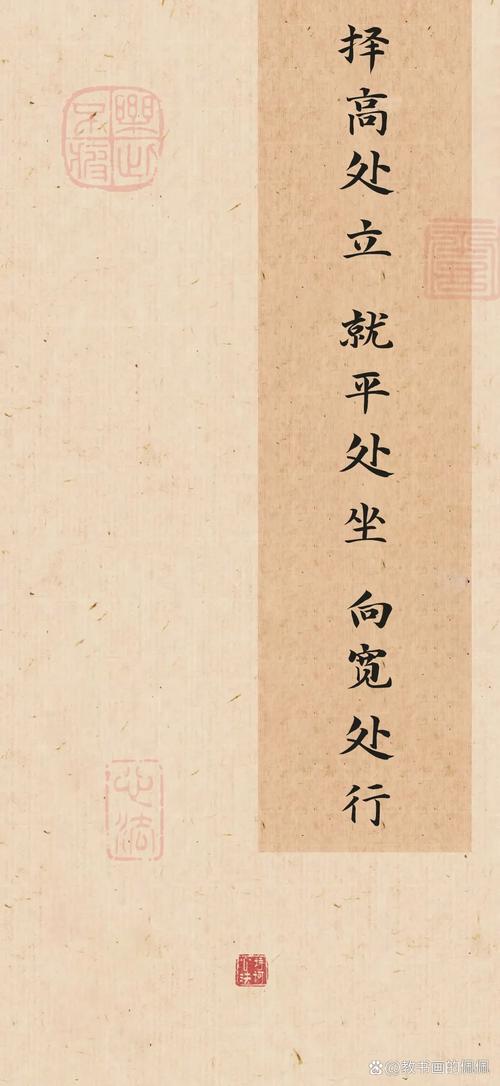 择高处立 就平处坐 向宽处行
心法
@教书画的佩佩